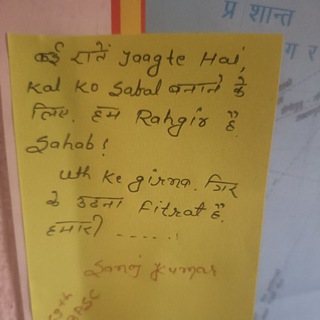 प्र शान्त
ग र
कई रातें Jaagte Hai,
Kal Ko Sabal बनाने के
लिए. हम Rahgir है
Sahab!
Uth Ke girna. गिर
के उठना Fitrat है.
हमारी ......!
Sanoj Kumar
69th
BPSC